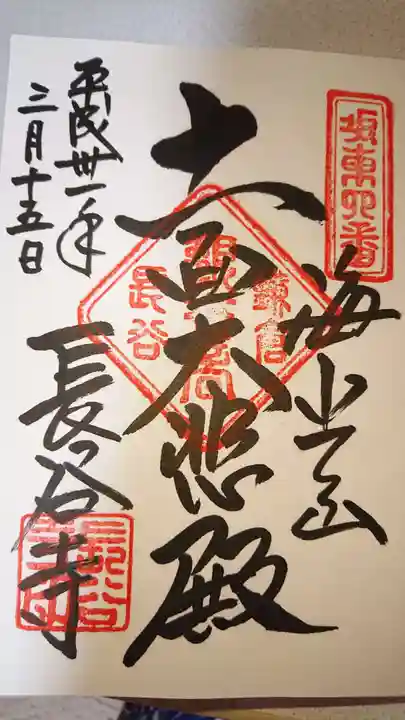 坂東四番
海光山
十一面大悲殿
鎌倉
観世音
長谷
平成卅一年
三月十五日
長谷寺